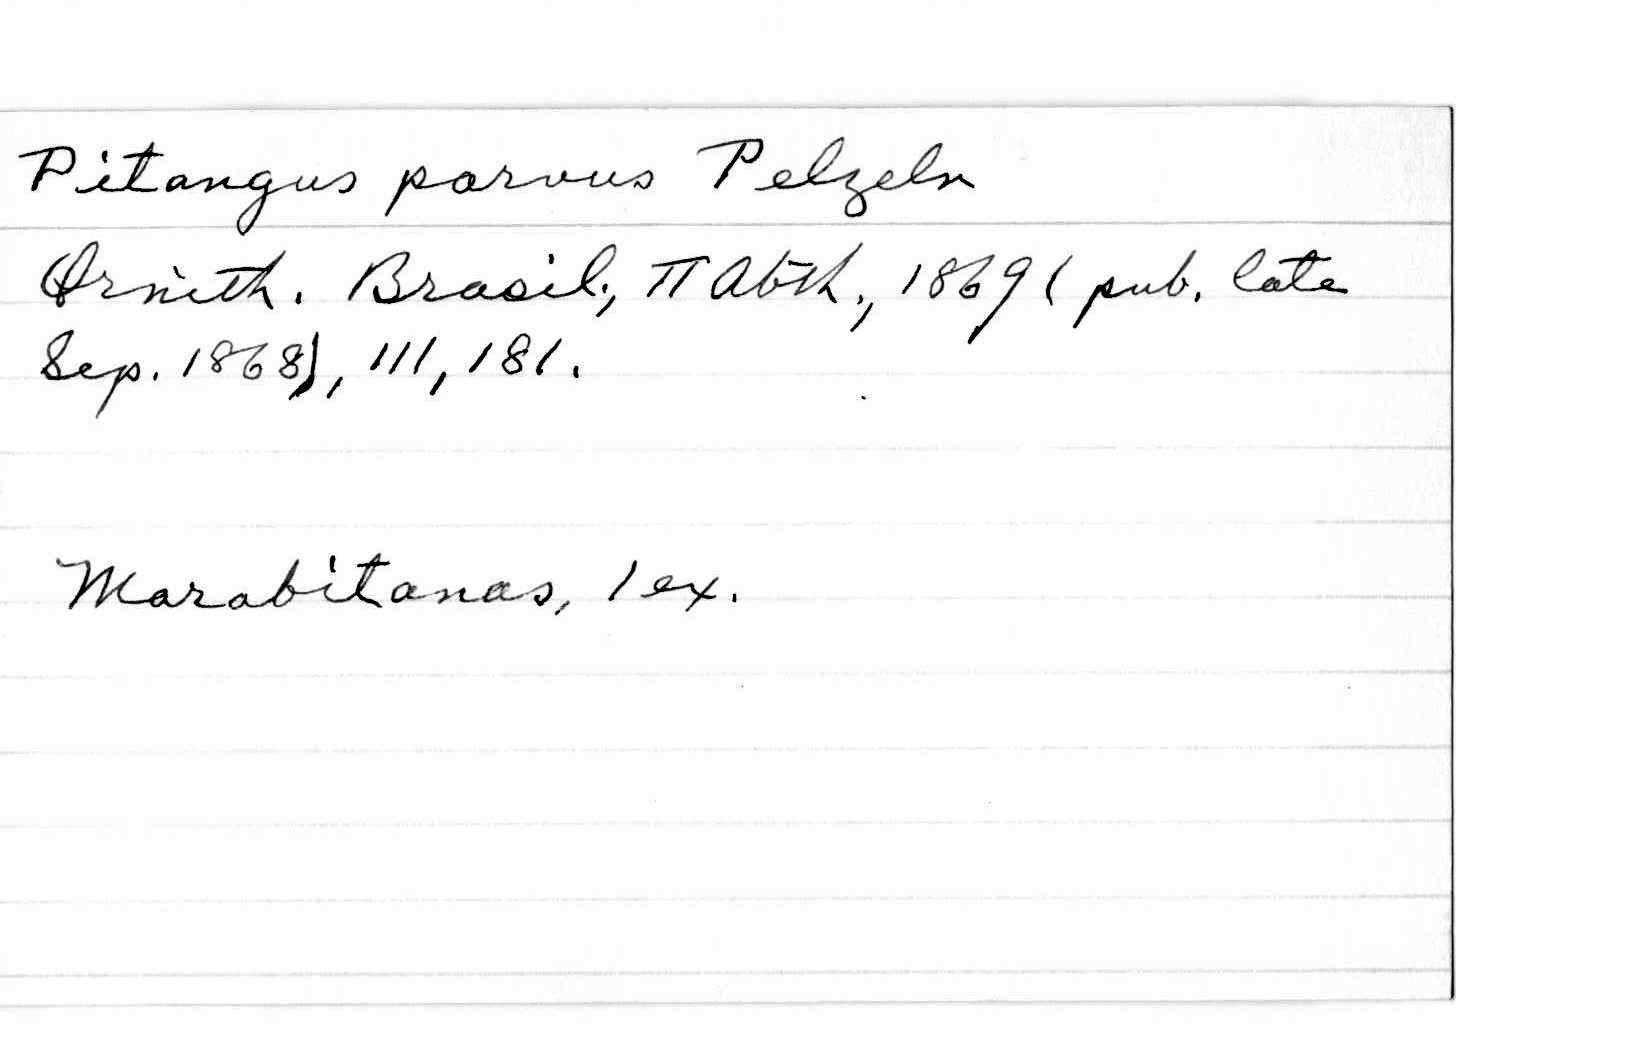 Pitangus parvus Pelzeln
Ornith. Brasil., II Abth., 1869 ( pub. late
Sep. 1868), 111, 181.
Marabitanas, 1 ex.